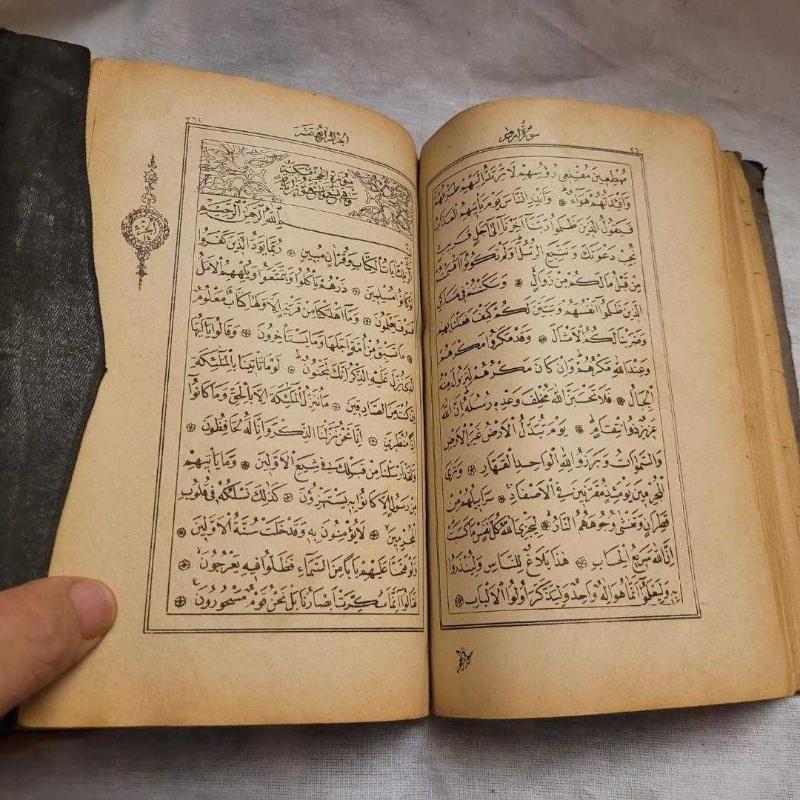 سورة ابراهيم
مُهْطِعِينَ مُقْنِعِي رُؤُسِهِمْ لَا يَرْتَدُّ اِلَيْهِمْ طَرْفُهُمْ
وَاَفْئِدَتُهُمْ هَوَاءٌ ۞ وَاَنْذِرِ النَّاسَ يَوْمَ يَاْتِيهِمُ الْعَذَابُ
فَيَقُولُ الَّذِينَ ظَلَمُوا رَبَّنَا اَخِّرْنَا اِلٰى اَجَلٍ قَرِيبٍ
نُجِبْ دَعْوَتَكَ وَنَتَّبِعِ الرُّسُلَ اَوَلَمْ تَكُونُوا اَقْسَمْتُمْ
مِنْ قَبْلُ مَالَكُمْ مِنْ زَوَالٍ ۞ وَسَكَنْتُمْ فِي مَسَاكِنِ
الَّذِينَ ظَلَمُوا اَنْفُسَهُمْ وَتَبَيَّنَ لَكُمْ كَيْفَ فَعَلْنَا بِهِمْ
وَضَرَبْنَا لَكُمُ الْاَمْثَالَ ۞ وَقَدْ مَكَرُوا مَكْرَهُمْ
وَعِنْدَ اللّٰهِ مَكْرُهُمْ وَاِنْ كَانَ مَكْرُهُمْ لِتَزُولَ مِنْهُ
الْجِبَالُ ۞ فَلَا تَحْسَبَنَّ اللّٰهَ مُخْلِفَ وَعْدِهِ رُسُلَهُ اِنَّ اللّٰهَ
عَزِيزٌ ذُو انْتِقَامٍ ۞ يَوْمَ تُبَدَّلُ الْاَرْضُ غَيْرَ الْاَرْضِ
وَالسَّمٰوَاتُ وَبَرَزُوا لِلّٰهِ الْوَاحِدِ الْقَهَّارِ ۞ وَتَرَى
الْمُجْرِمِينَ يَوْمَئِذٍ مُقَرَّنِينَ فِي الْاَصْفَادِ ۞ سَرَابِيلُهُمْ مِنْ
قَطِرَانٍ وَتَغْشٰى وُجُوهَهُمُ النَّارُ ۞ لِيَجْزِيَ اللّٰهُ كُلَّ نَفْسٍ مَا كَسَبَتْ
اِنَّ اللّٰهَ سَرِيعُ الْحِسَابِ ۞ هٰذَا بَلَاغٌ لِلنَّاسِ وَلِيُنْذَرُوا
بِهِ وَلِيَعْلَمُوا اَنَّمَا هُوَ اِلٰهٌ وَاحِدٌ وَلِيَذَّكَّرَ اُولُوا الْاَلْبَابِ ۞
سورة الحجر
٢٦١
الجزء الرابع عشر
سورة الحجر مكية
وهي تسع وتسعون آية
اللّٰهِ الرَّحْمٰنِ الرَّحِيمِ
تِلْكَ اٰيَاتُ الْكِتَابِ وَقُرْاٰنٍ مُبِينٍ ۞ رُبَمَا يَوَدُّ الَّذِينَ كَفَرُوا
لَوْ كَانُوا مُسْلِمِينَ ۞ ذَرْهُمْ يَاْكُلُوا وَيَتَمَتَّعُوا وَيُلْهِهِمُ الْاَمَلُ
فَسَوْفَ يَعْلَمُونَ ۞ وَمَا اَهْلَكْنَا مِنْ قَرْيَةٍ اِلَّا وَلَهَا كِتَابٌ مَعْلُومٌ
مَا تَسْبِقُ مِنْ اُمَّةٍ اَجَلَهَا وَمَا يَسْتَاْخِرُونَ ۞ وَقَالُوا يَا اَيُّهَا
الَّذِي نُزِّلَ عَلَيْهِ الذِّكْرُ اِنَّكَ لَمَجْنُونٌ ۞ لَوْ مَا تَاْتِينَا بِالْمَلٰئِكَةِ
اِنْ كُنْتَ مِنَ الصَّادِقِينَ ۞ مَا نُنَزِّلُ الْمَلٰئِكَةَ اِلَّا بِالْحَقِّ وَمَا كَانُوا
اِذًا مُنْظَرِينَ ۞ اِنَّا نَحْنُ نَزَّلْنَا الذِّكْرَ وَاِنَّا لَهُ لَحَافِظُونَ ۞
وَلَقَدْ اَرْسَلْنَا مِنْ قَبْلِكَ فِي شِيَعِ الْاَوَّلِينَ ۞ وَمَا يَاْتِيهِمْ
مِنْ رَسُولٍ اِلَّا كَانُوا بِهِ يَسْتَهْزِؤُنَ ۞ كَذٰلِكَ نَسْلُكُهُ فِي قُلُوبِ
الْمُجْرِمِينَ ۞ لَا يُؤْمِنُونَ بِهِ وَقَدْ خَلَتْ سُنَّةُ الْاَوَّلِينَ ۞
وَلَوْ فَتَحْنَا عَلَيْهِمْ بَابًا مِنَ السَّمَاءِ فَظَلُّوا فِيهِ يَعْرُجُونَ ۞
لَقَالُوا اِنَّمَا سُكِّرَتْ اَبْصَارُنَا بَلْ نَحْنُ قَوْمٌ مَسْحُورُونَ ۞